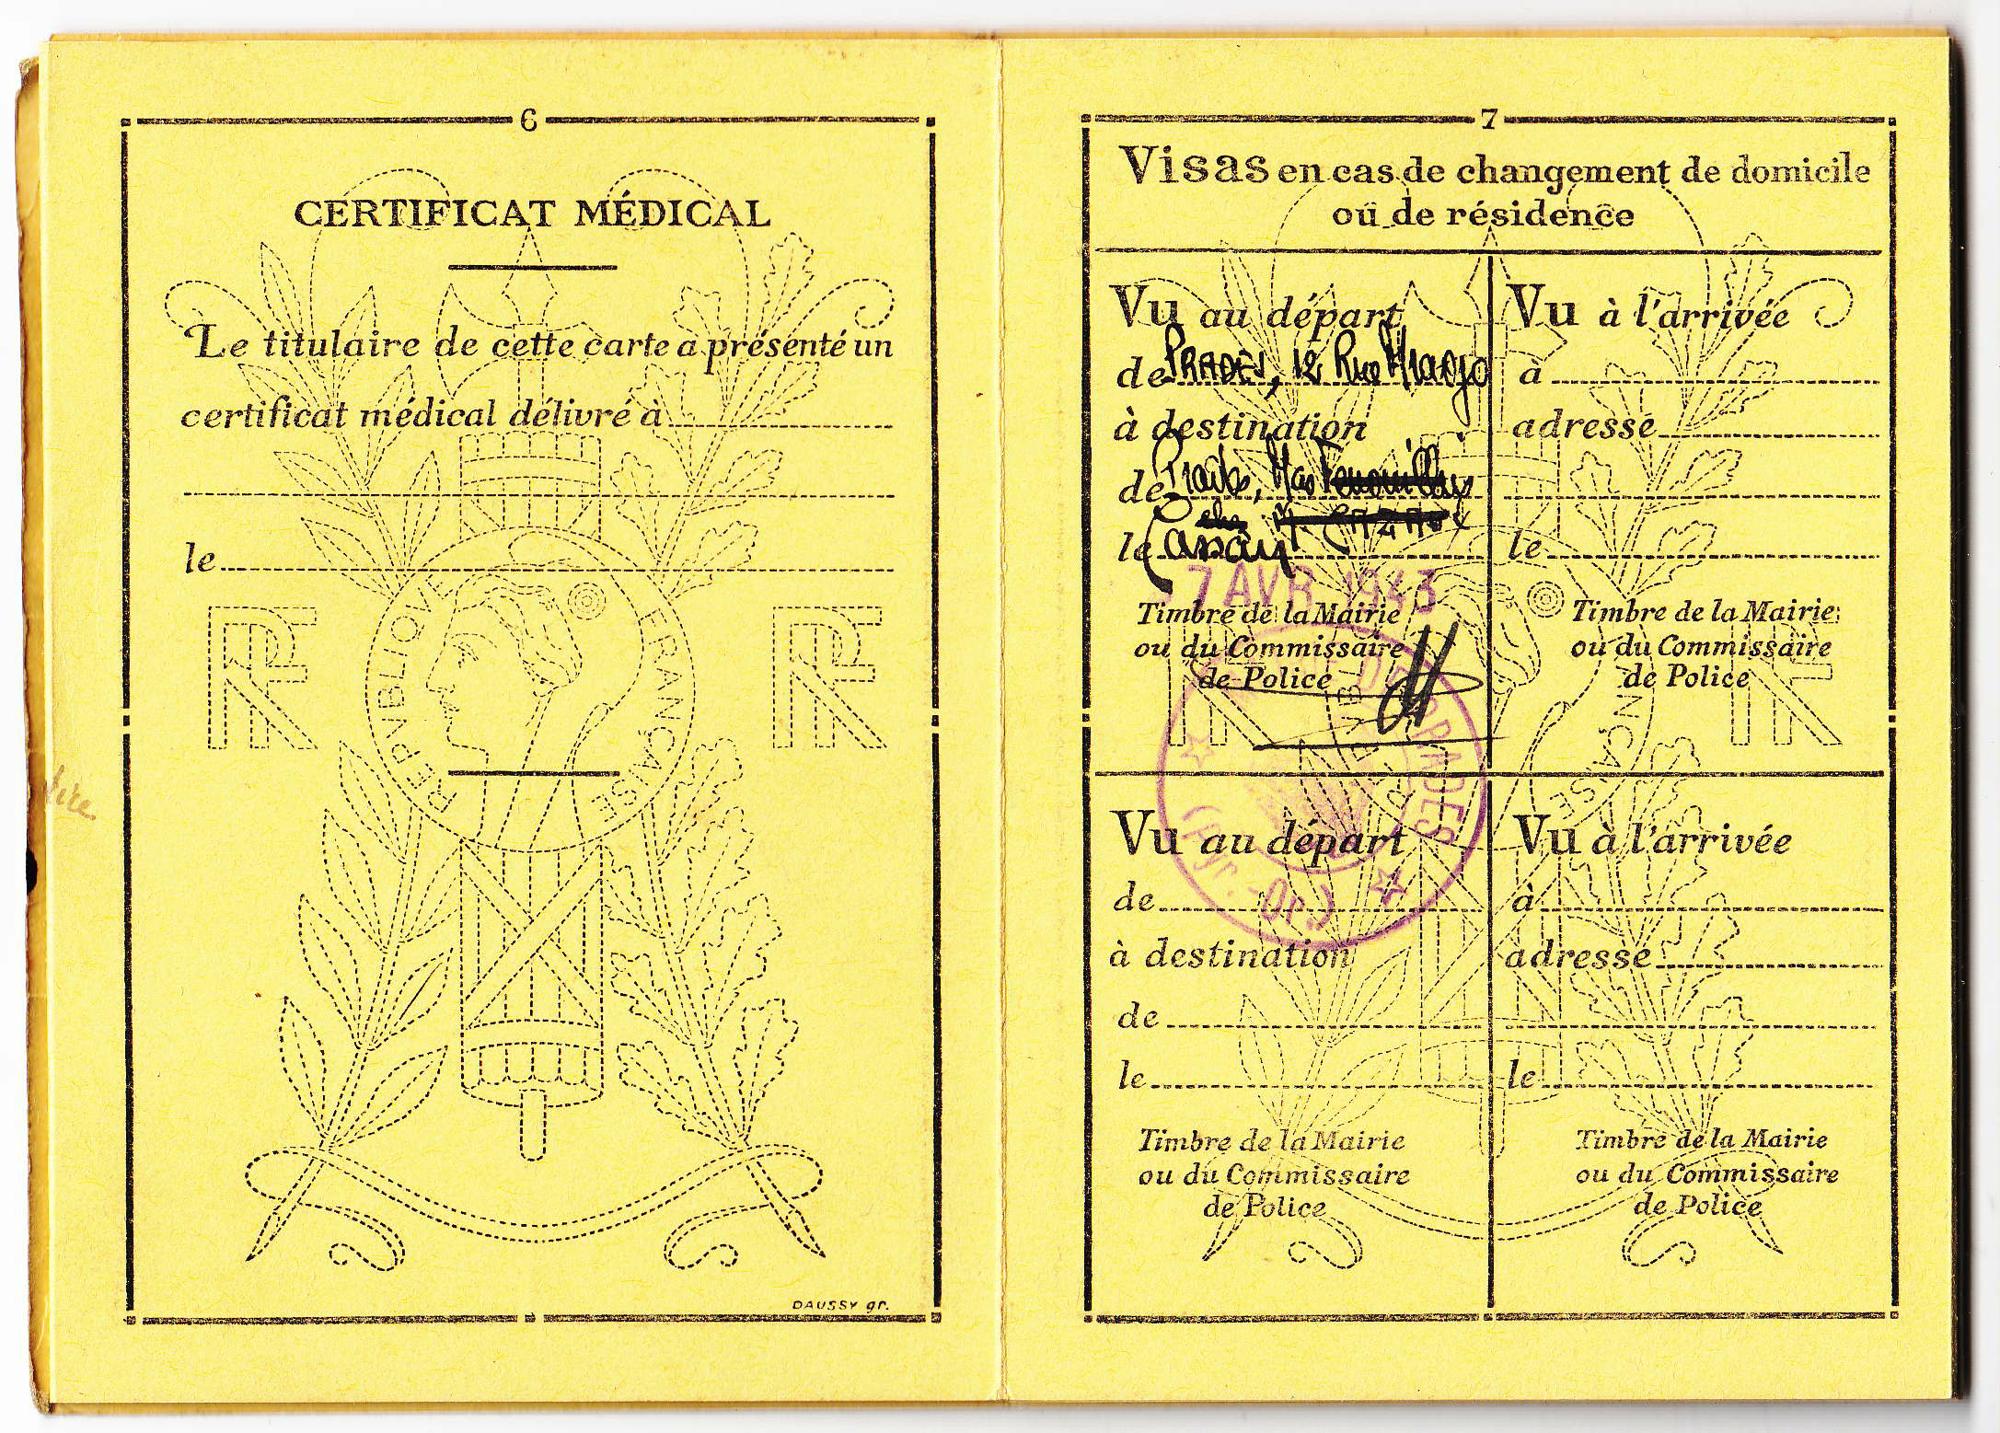 6
CERTIFICAT MÉDICAL
Le titulaire de cette carte a présenté un
certificat médical délivré à
le
RF
RF
REPVBLIQVE FRANÇAISE
DAUSSY gr.
7
Visas en cas de changement de domicile
ou de résidence
Vu au départ
de PRADES, 12 Rue
à destination
de Prades, Mas
le
7 AVR 1943
Timbre de la Mairie
ou du Commissaire
de Police
DE PRADES
(Pyr.-Or.)
Vu à l'arrivée
à
adresse
le
Timbre de la Mairie
ou du Commissaire
de Police
Vu au départ
de
à destination
de
le
Timbre de la Mairie
ou du Commissaire
de Police
Vu à l'arrivée
à
adresse
le
Timbre de la Mairie
ou du Commissaire
de Police